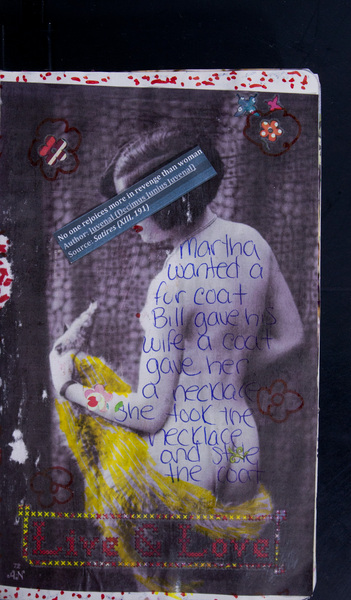 No one rejoices more in revenge than woman
Author: Juvenal (Decimus Junius Juvenal)
Source: Satires (XIII, 191)
Martha
wanted a
fur coat
Bill gave his
wife a coat
gave her
a necklace
She took the
necklace
and stole
the coat
Live & Love